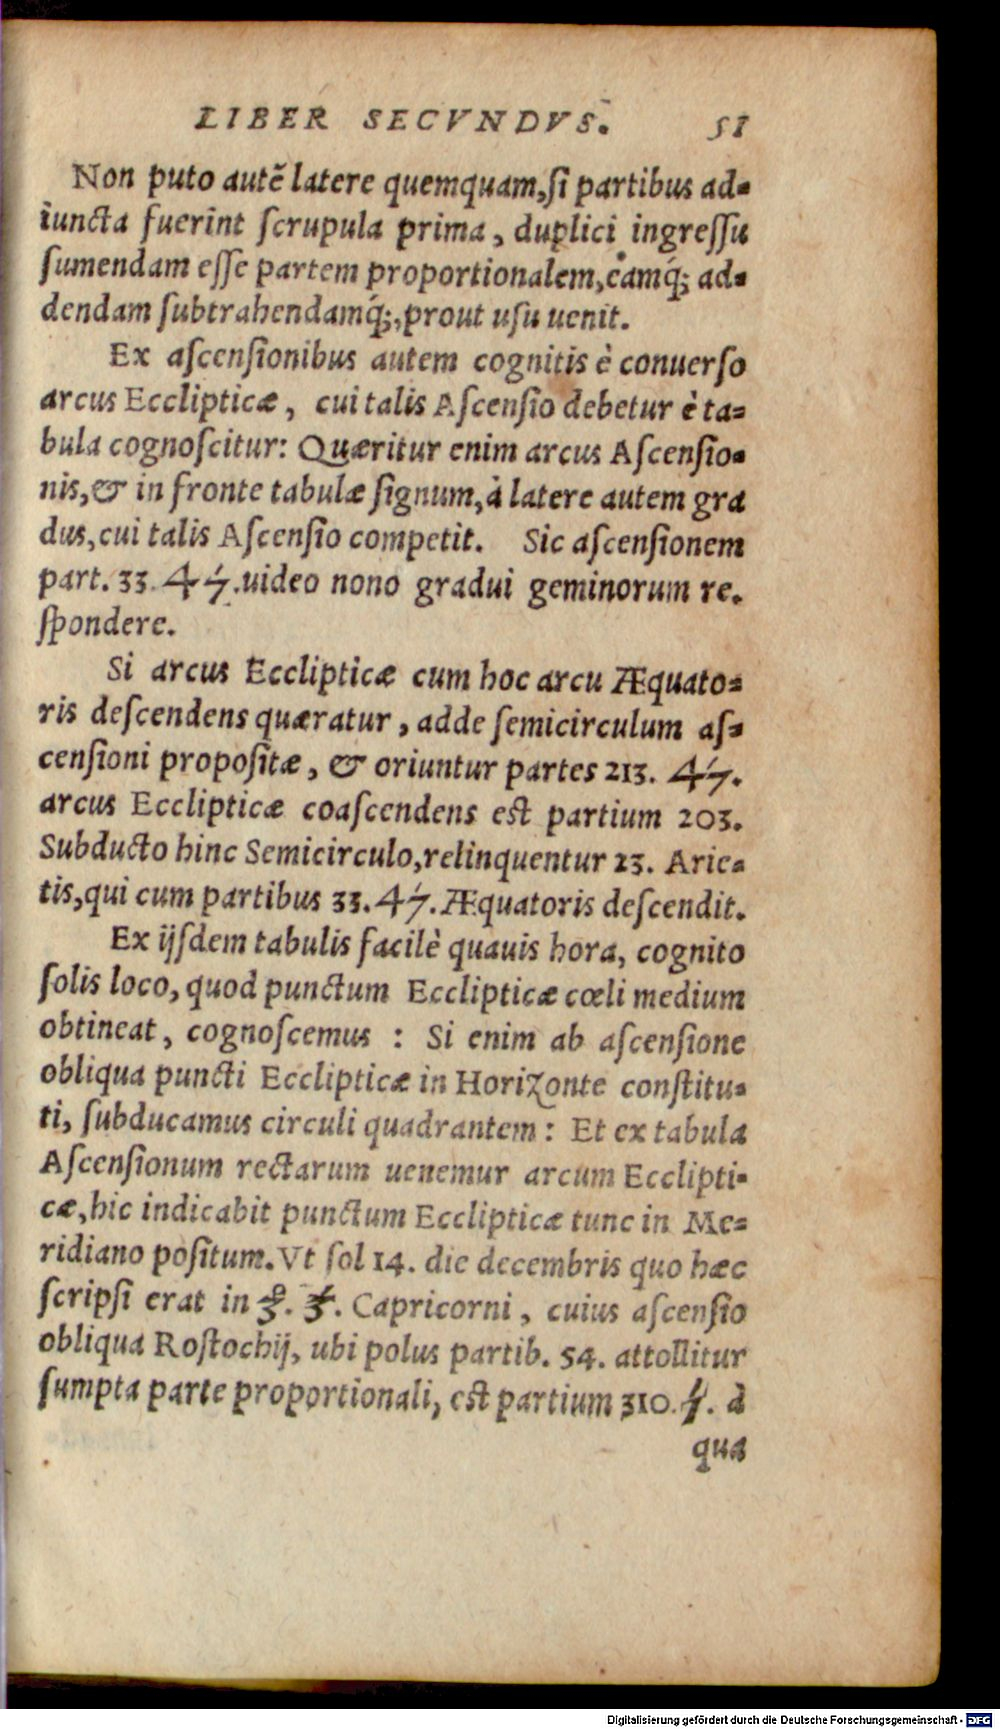 LIBER SECVNDVS. 51
Non puto autẽ latere quemquam, ſi partibus ad-
iuncta fuerint ſcrupula prima, duplici ingreſſu
ſumendam eſſe partem proportionalem, eamq́; ad-
dendam ſubtrahendamq́;, prout uſu uenit.
Ex aſcenſionibus autem cognitis è conuerſo
arcus Ecclipticæ, cui talis Aſcenſio debetur è ta-
bula cognoſcitur: Quæritur enim arcus Aſcenſio-
nis, & in fronte tabulæ ſignum, à latere autem gra
dus, cui talis Aſcenſio competit. Sic aſcenſionem
part. 33. 47. uideo nono gradui geminorum re.
ſpondere.
Si arcus Ecclipticæ cum hoc arcu Æquato-
ris deſcendens quæratur, adde ſemicirculum aſ-
cenſioni propoſitæ, & oriuntur partes 213. 47.
arcus Ecclipticæ coaſcendens eſt partium 203.
Subducto hinc Semicirculo, relinquentur 23. Arie-
tis, qui cum partibus 33. 47. Æquatoris deſcendit.
Ex ijſdem tabulis facilè quauis hora, cognito
ſolis loco, quod punctum Ecclipticæ cœli medium
obtineat, cognoſcemus : Si enim ab aſcenſione
obliqua puncti Ecclipticæ in Horizonte conſtitu-
ti, ſubducamus circuli quadrantem : Et ex tabula
Aſcenſionum rectarum uenemur arcum Ecclipti-
cæ, hic indicabit punctum Ecclipticæ tunc in Me-
ridiano poſitum. Vt ſol 14. die decembris quo hæc
ſcripſi erat in Capricorni, cuius aſcenſio
obliqua Roſtochij, ubi polus partib. 54. attollitur
ſumpta parte proportionali, eſt partium 310. à
qua
Digitalisierung gefördert durch die Deutsche Forschungsgemeinschaft - DFG